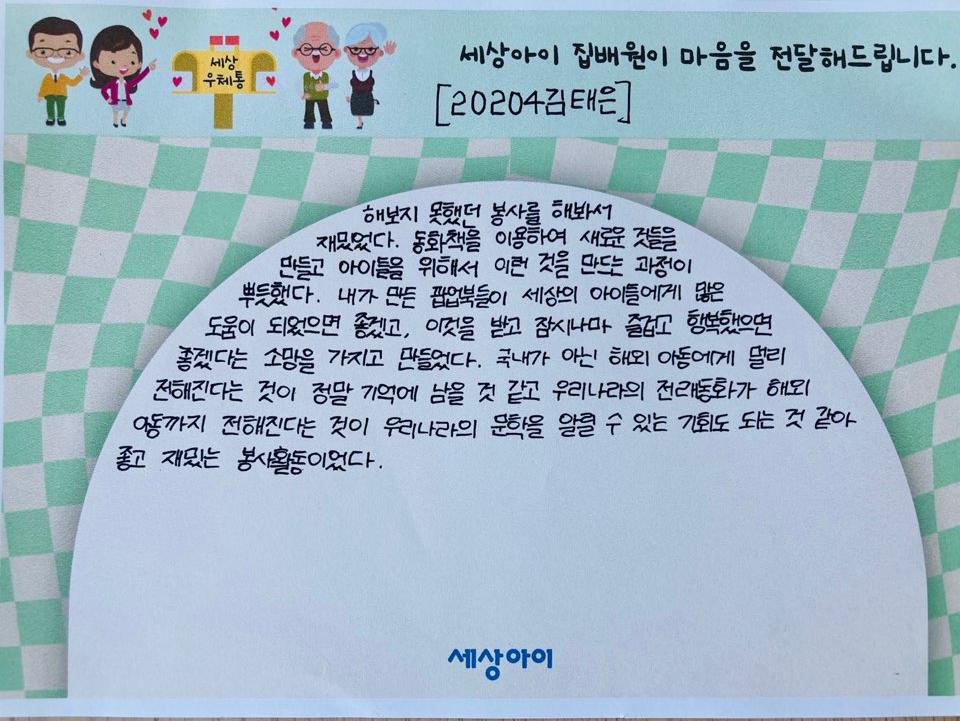 세상아이 집배원이 마음을 전달해드립니다.
세상
우체통
[20204김태은]
해보지 못했던 봉사를 해봐서
재밌었다. 동화책을 이용하여 새로운 것들을
만들고 아이들을 위해서 이런 것을 만드는 과정이
뿌듯했다. 내가 만든 팝업북들이 세상의 아이들에게 많은
도움이 되었으면 좋겠고, 이것을 받고 잠시나마 즐겁고 행복했으면
좋겠다는 소망을 가지고 만들었다. 국내가 아닌 해외 아동에게 멀리
전해진다는 것이 정말 기억에 남을 것 같고 우리나라의 전래동화가 해외
아동까지 전해진다는 것이 우리나라의 문학을 알릴 수 있는 기회도 되는 것 같아
좋고 재밌는 봉사활동이었다.
세상아이